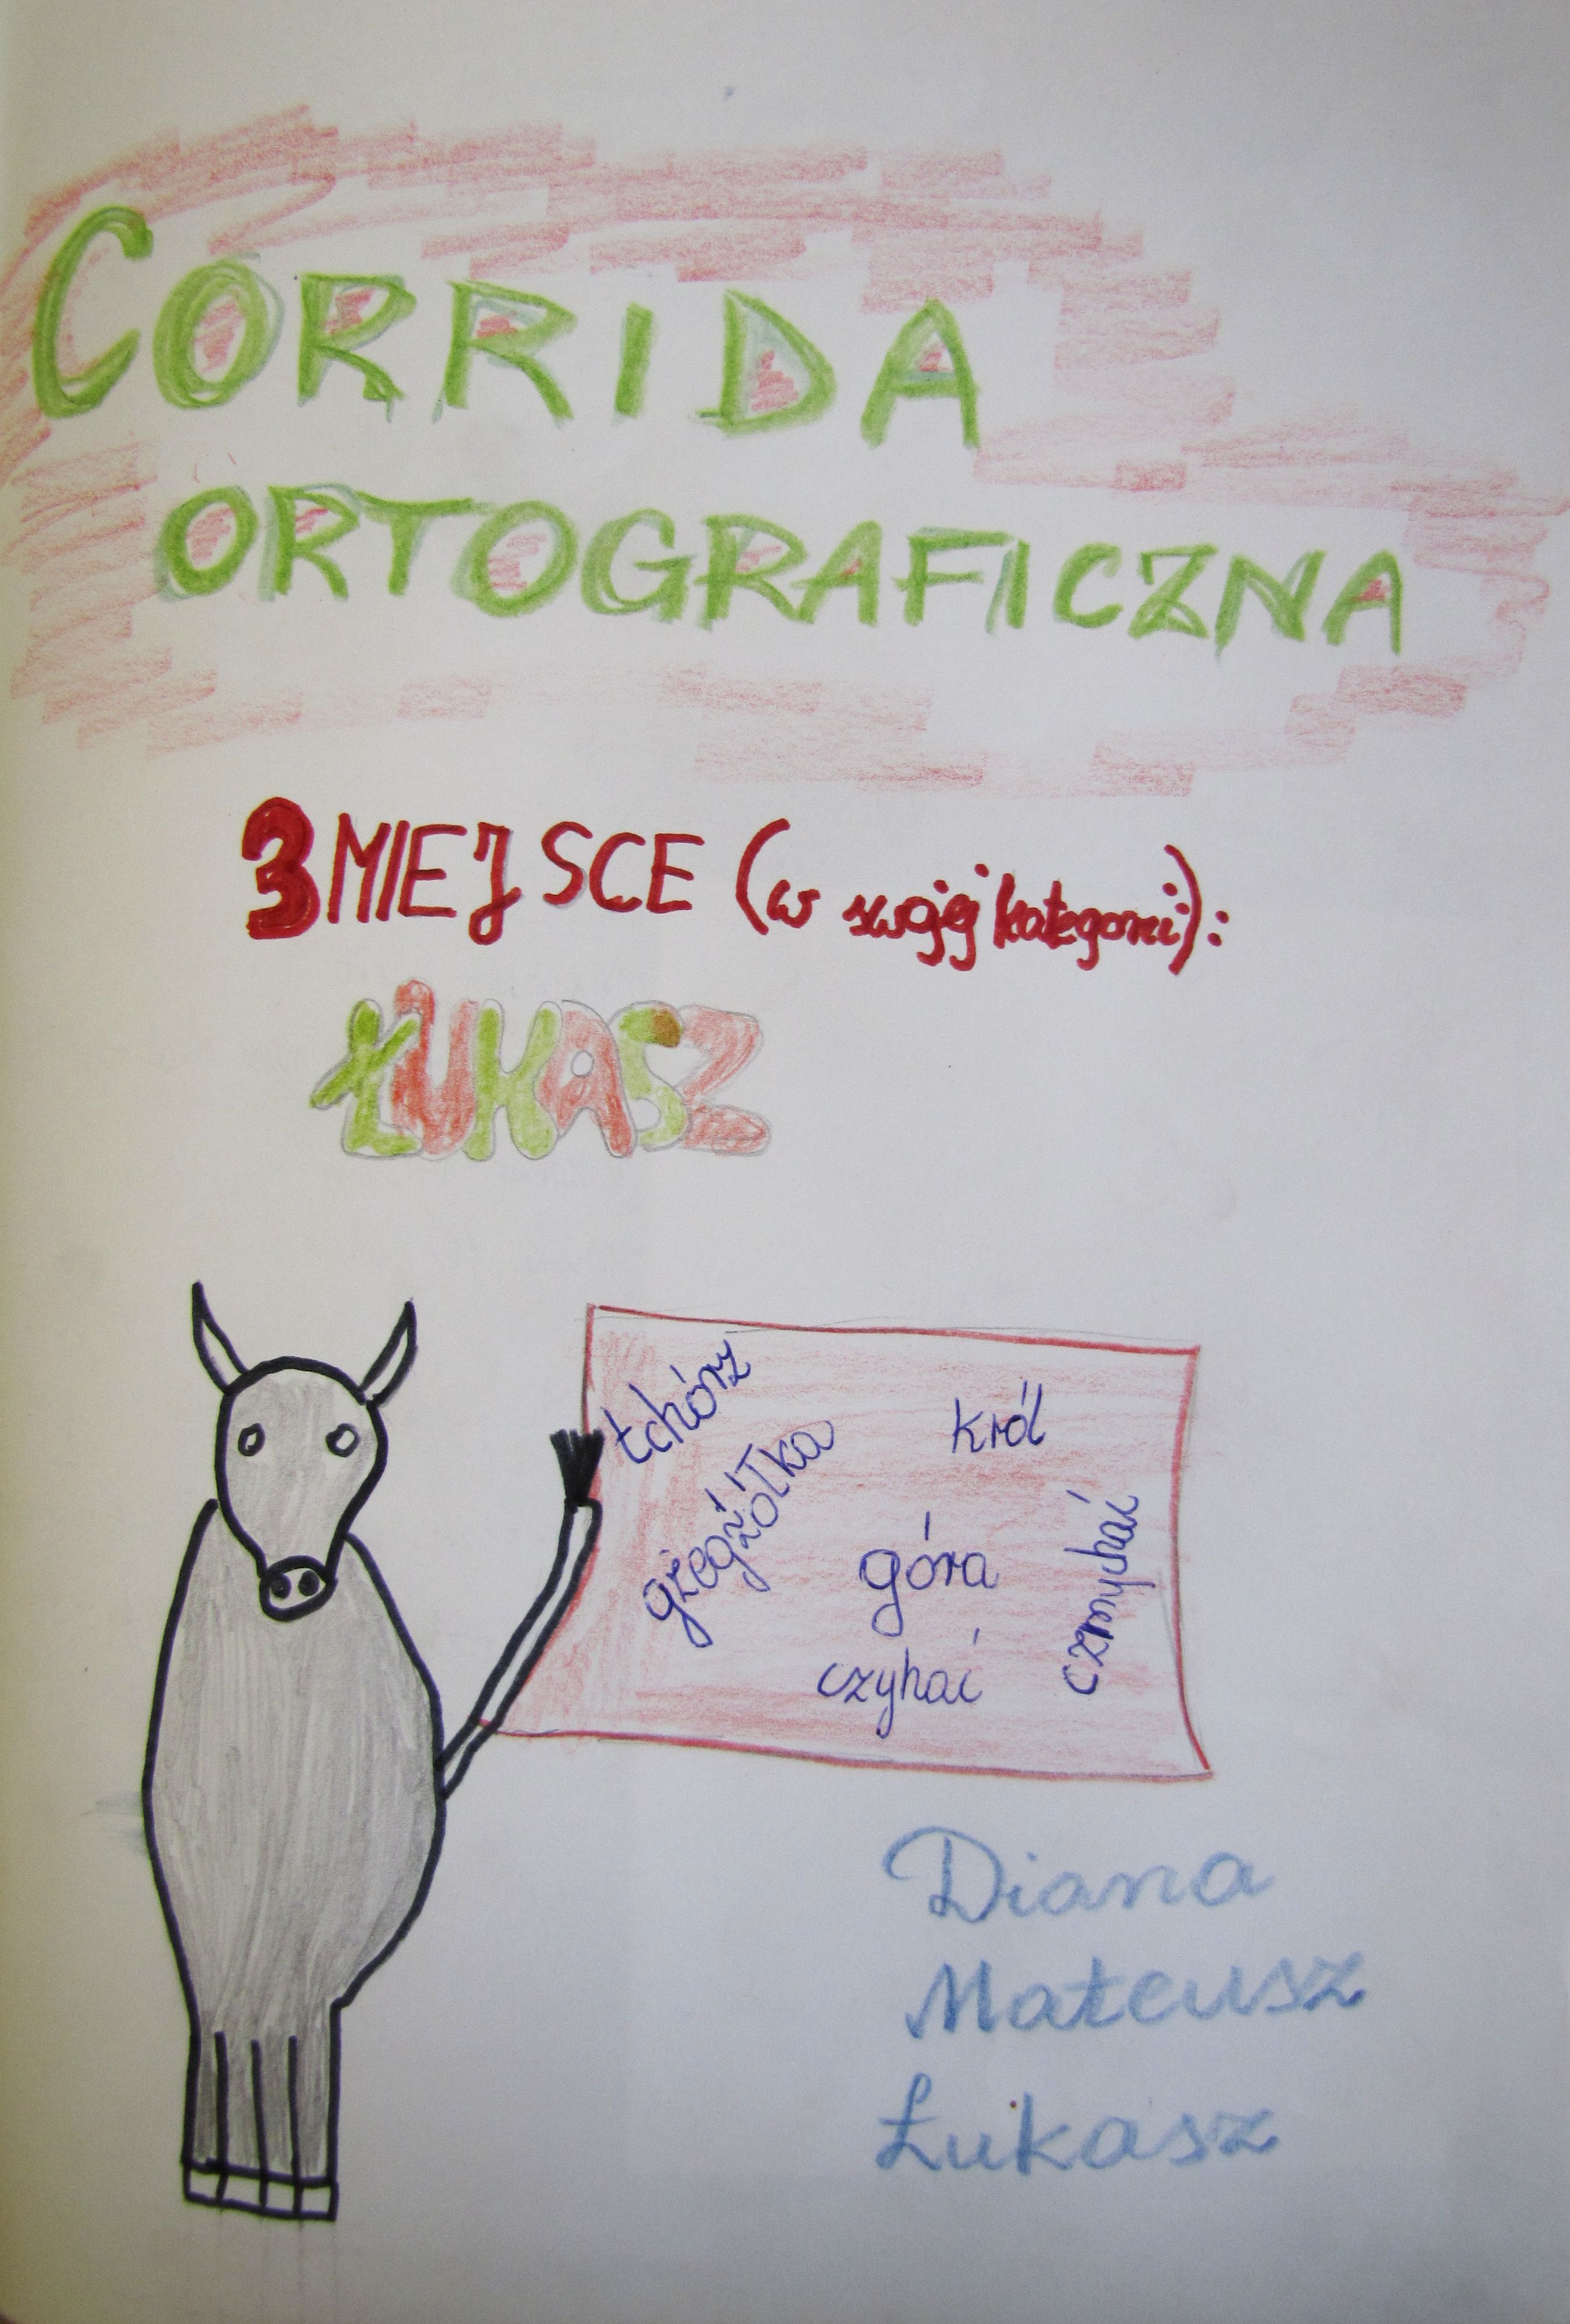 CORRIDA
ORTOGRAFICZNA
3 MIEJSCE (w swojej kategorii):
ŁUKASZ
tchórz
król
gżegżółka
góra
czmychać
czyhać
Diana
Mateusz
Łukasz